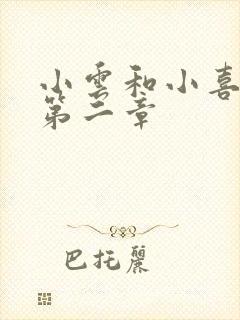 小雲和小喜
第二章
巴托麗